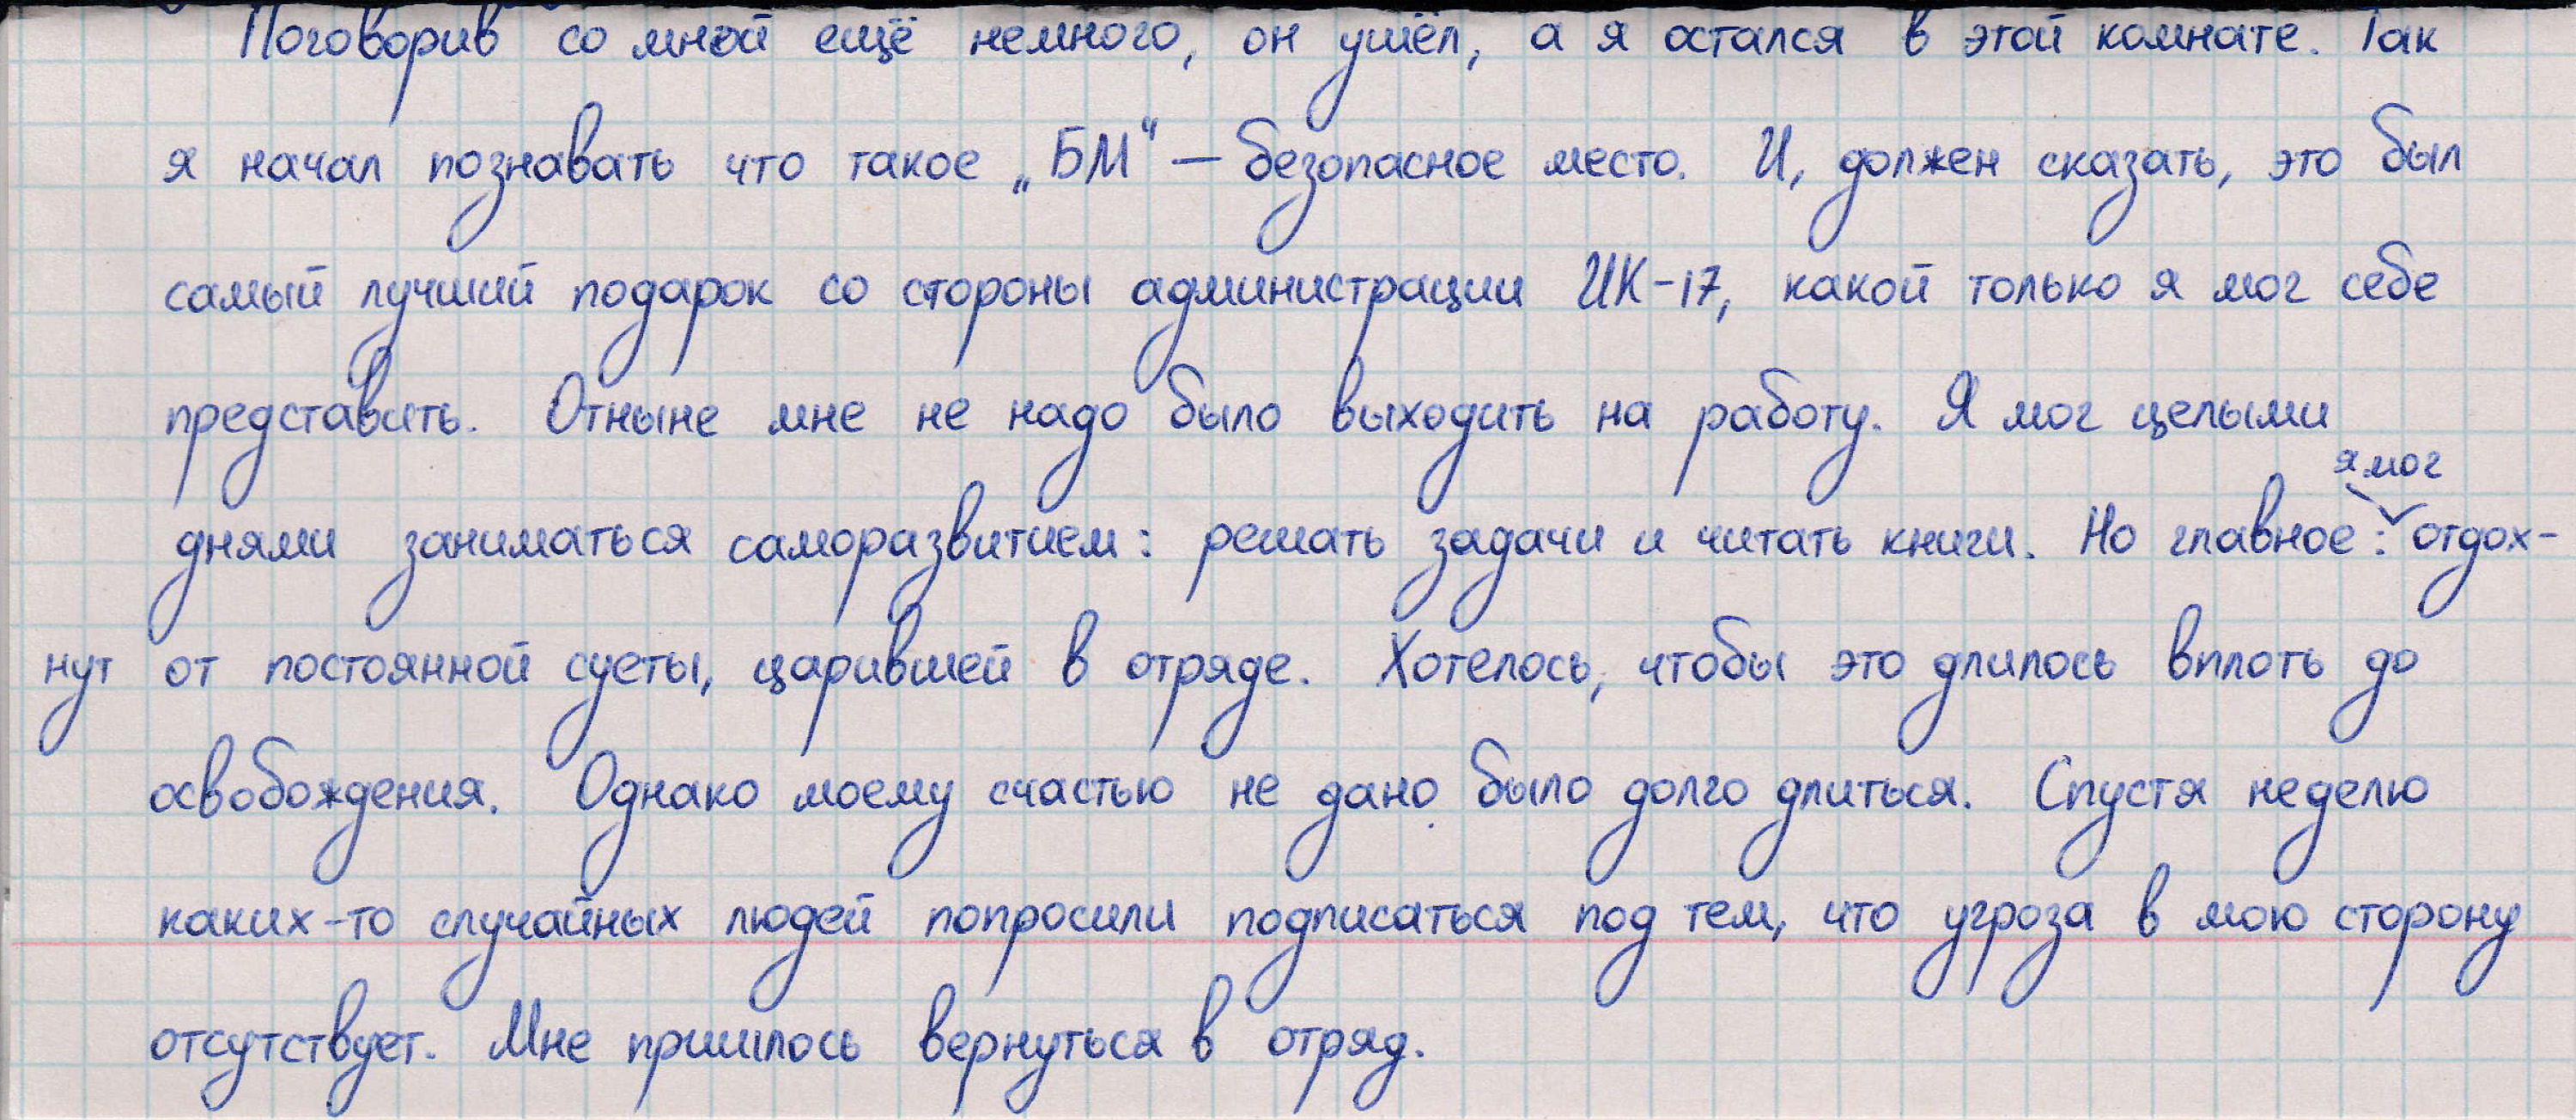 Поговорив со мной ещё немного, он ушёл, а я остался в этой комнате. Так
я начал познавать что такое „БМ“ – безопасное место. И, должен сказать, это был
самый лучший подарок со стороны администрации ИК-17, какой только я мог себе
представить. Отныне мне не надо было выходить на работу. Я мог целыми
я мог
днями заниматься саморазвитием: решать задачи и читать книги. Но главное: отдох-
нут от постоянной суеты, царившей в отряде. Хотелось, чтобы это длилось вплоть до
освобождения. Однако моему счастью не дано было долго длиться. Спустя неделю
каких-то случайных людей попросили подписаться под тем, что угроза в мою сторону
отсутствует. Мне пришлось вернуться в отряд.